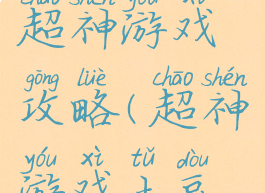 chāo shén yóu xì
超神游戏
gōng lüè chāo shén
攻略(超神
yóu xì tǔ dòu
游戏土豆